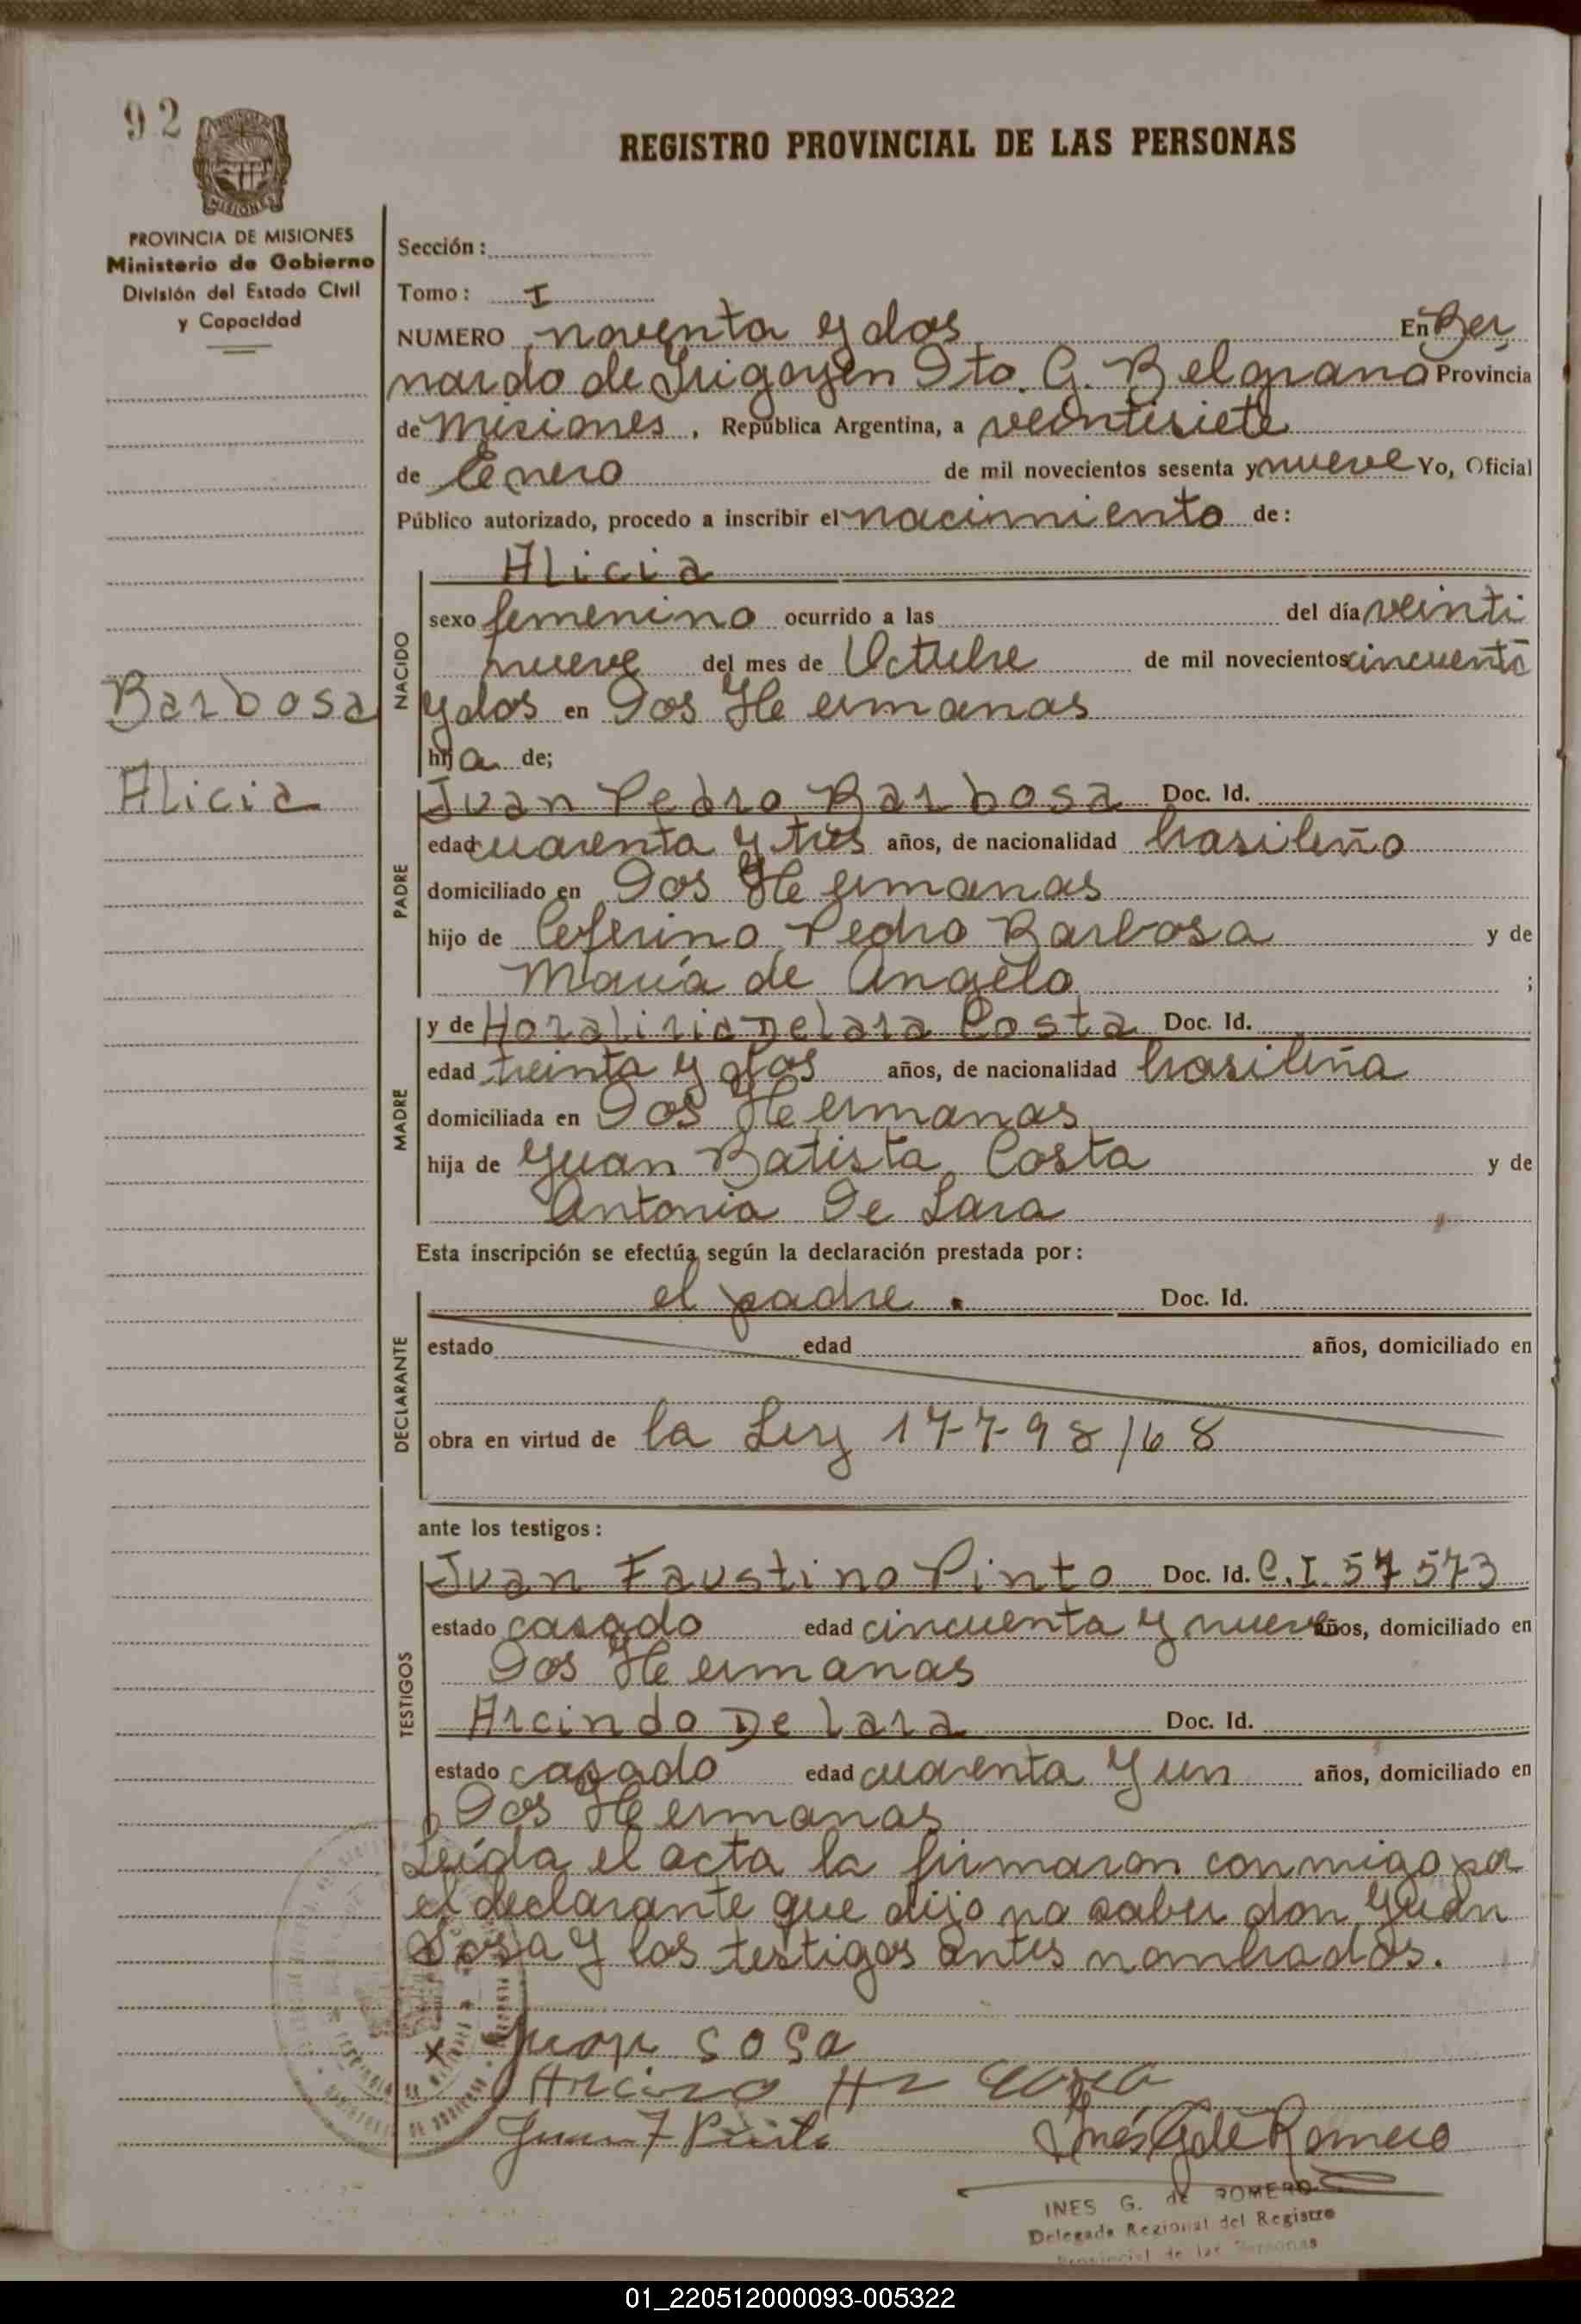 92
REGISTRO PROVINCIAL DE LAS PERSONAS
MISIONES
PROVINCIA DE MISIONES
Ministerio de Gobierno
División del Estado Civil
y Capacidad
Sección:
Tomo: I
NUMERO noventa y dos En Ber
nardo de Irigoyen Dto. G. Belgrano Provincia
de Misiones, República Argentina, a veintisiete
de Enero de mil novecientos sesenta y nueve Yo, Oficial
Público autorizado, procedo a inscribir el nacimiento de:
Alicia
NACIDO
sexo femenino ocurrido a las del día veinti
nueve del mes de Octubre de mil novecientos cincuenta
Barbosa
y dos en Dos Hermanas
hija de;
Alicia
PADRE
Juan Pedro Barbosa Doc. Id.
edad cuarenta y tres años, de nacionalidad brasileño
domiciliado en Dos Hermanas
hijo de Ceferino Pedro Barbosa y de
María de Angelo ;
MADRE
y de Horalicia De Lara Costa Doc. Id.
edad treinta y dos años, de nacionalidad brasileña
domiciliada en Dos Hermanas
hija de Juan Batista Costa y de
Antonia De Lara
Esta inscripción se efectúa según la declaración prestada por:
DECLARANTE
el padre. Doc. Id.
estado edad años, domiciliado en
obra en virtud de la Ley 17798/68
ante los testigos:
TESTIGOS
Juan Faustino Pinto Doc. Id. C.I. 57573
estado casado edad cincuenta y nueve años, domiciliado en
Dos Hermanas
Arcindo De Lara Doc. Id.
estado casado edad cuarenta y un años, domiciliado en
Dos Hermanas
Leída el acta la firmaron conmigo por
el declarante que dijo no saber don Juan
Sosa y los testigos antes nombrados.
x Juan Sosa
Juan F Pinto
Inés G de Romero
INES G. de ROMERO
Delegada Regional del Registro
Provincial de las Personas
01_220512000093-005322